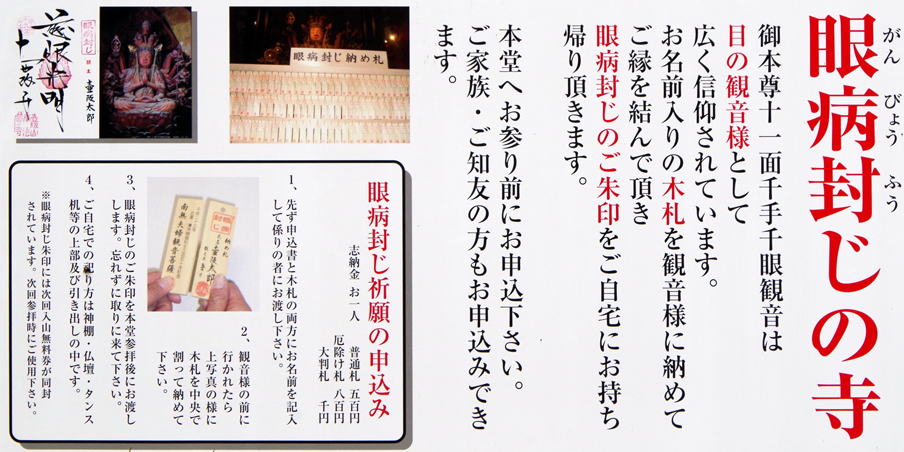 眼病封じの寺
がん びょう ふう
御本尊十一面千手千眼観音は
目の観音様として
広く信仰されています。
お名前入りの木札を観音様に納めて
ご縁を結んで頂き
眼病封じのご朱印をご自宅にお持ち
帰り頂きます。
本堂へお参り前にお申込下さい。
ご家族・ご知友の方もお申込みでき
ます。
眼病封じ納め札
眼病封じ
壷阪太郎
眼病封じ祈願の申込み
志納金 お一人
普通札 五百円
厄除け札 八百円
大判札 千円
1、先ず申込書と木札の両方にお名前を記入
して係りの者にお渡し下さい。
納め札
壷阪太郎
南無大悲観音菩薩
2、観音様の前に
行かれたら
上写真の様に
木札を中央で
割って納めて
下さい。
3、眼病封じのご朱印を本堂参拝後にお渡し
します。忘れずに取りに来て下さい。
4、ご自宅での祀り方は神棚・仏壇・タンス
机等の上部及び引き出しの中です。
※眼病封じ朱印には次回入山無料券が同封
されています。次回参拝時にご使用下さい。